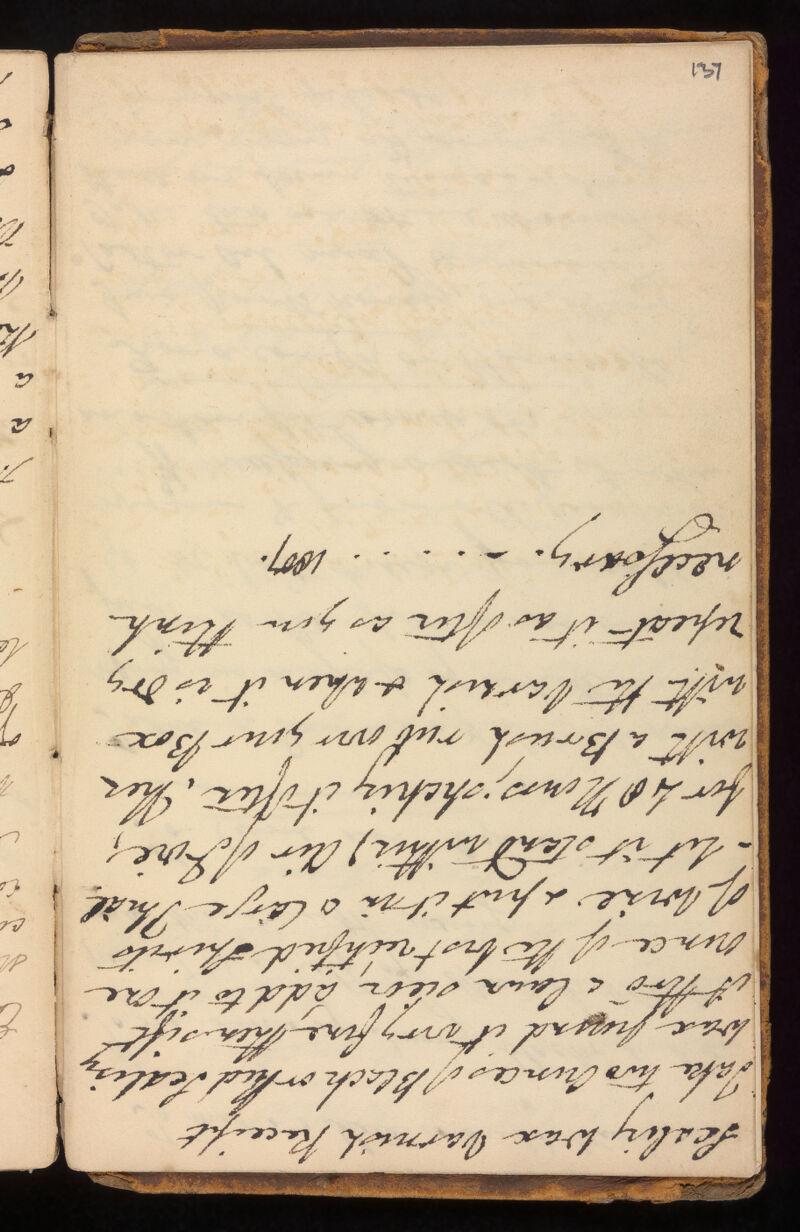 137
Sealing Wax Varnish Receipt
Take two Ounces of Black or Red Sealing
Wax pound it very fine then sift
it thro' a lawn sieve, add to it one
ounce of the best rectified Spirits
of Wine & put it in a large Phial
- let it stand within the Air of Fire,
for 48 Hours, shaking it often, then
with a Brush rub over your Box
with the Varnish & when it is dry
repeat it as often as you think
necessary. - . . . . 1807.